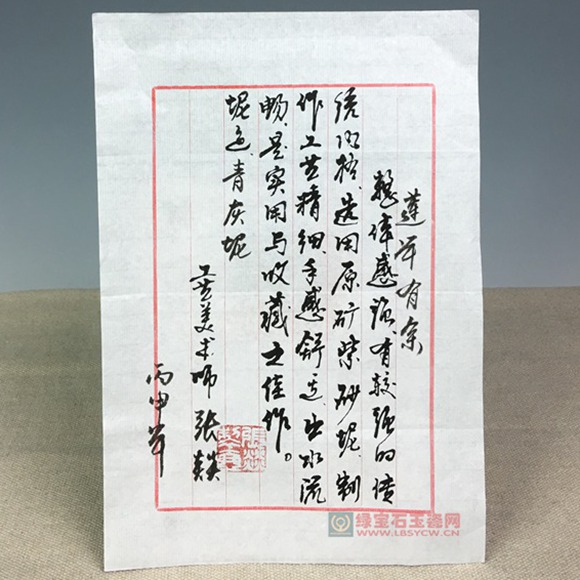 莲年有余
整体感强，有较强的传
统风格，选用原矿紫砂泥，制
作工艺精细，手感舒适，出水流
畅，是实用与收藏之佳作。
泥色青灰泥
工艺美术师 张燚
丙申年
绿宝石玉瓷网
WWW.LBSYCW.CN